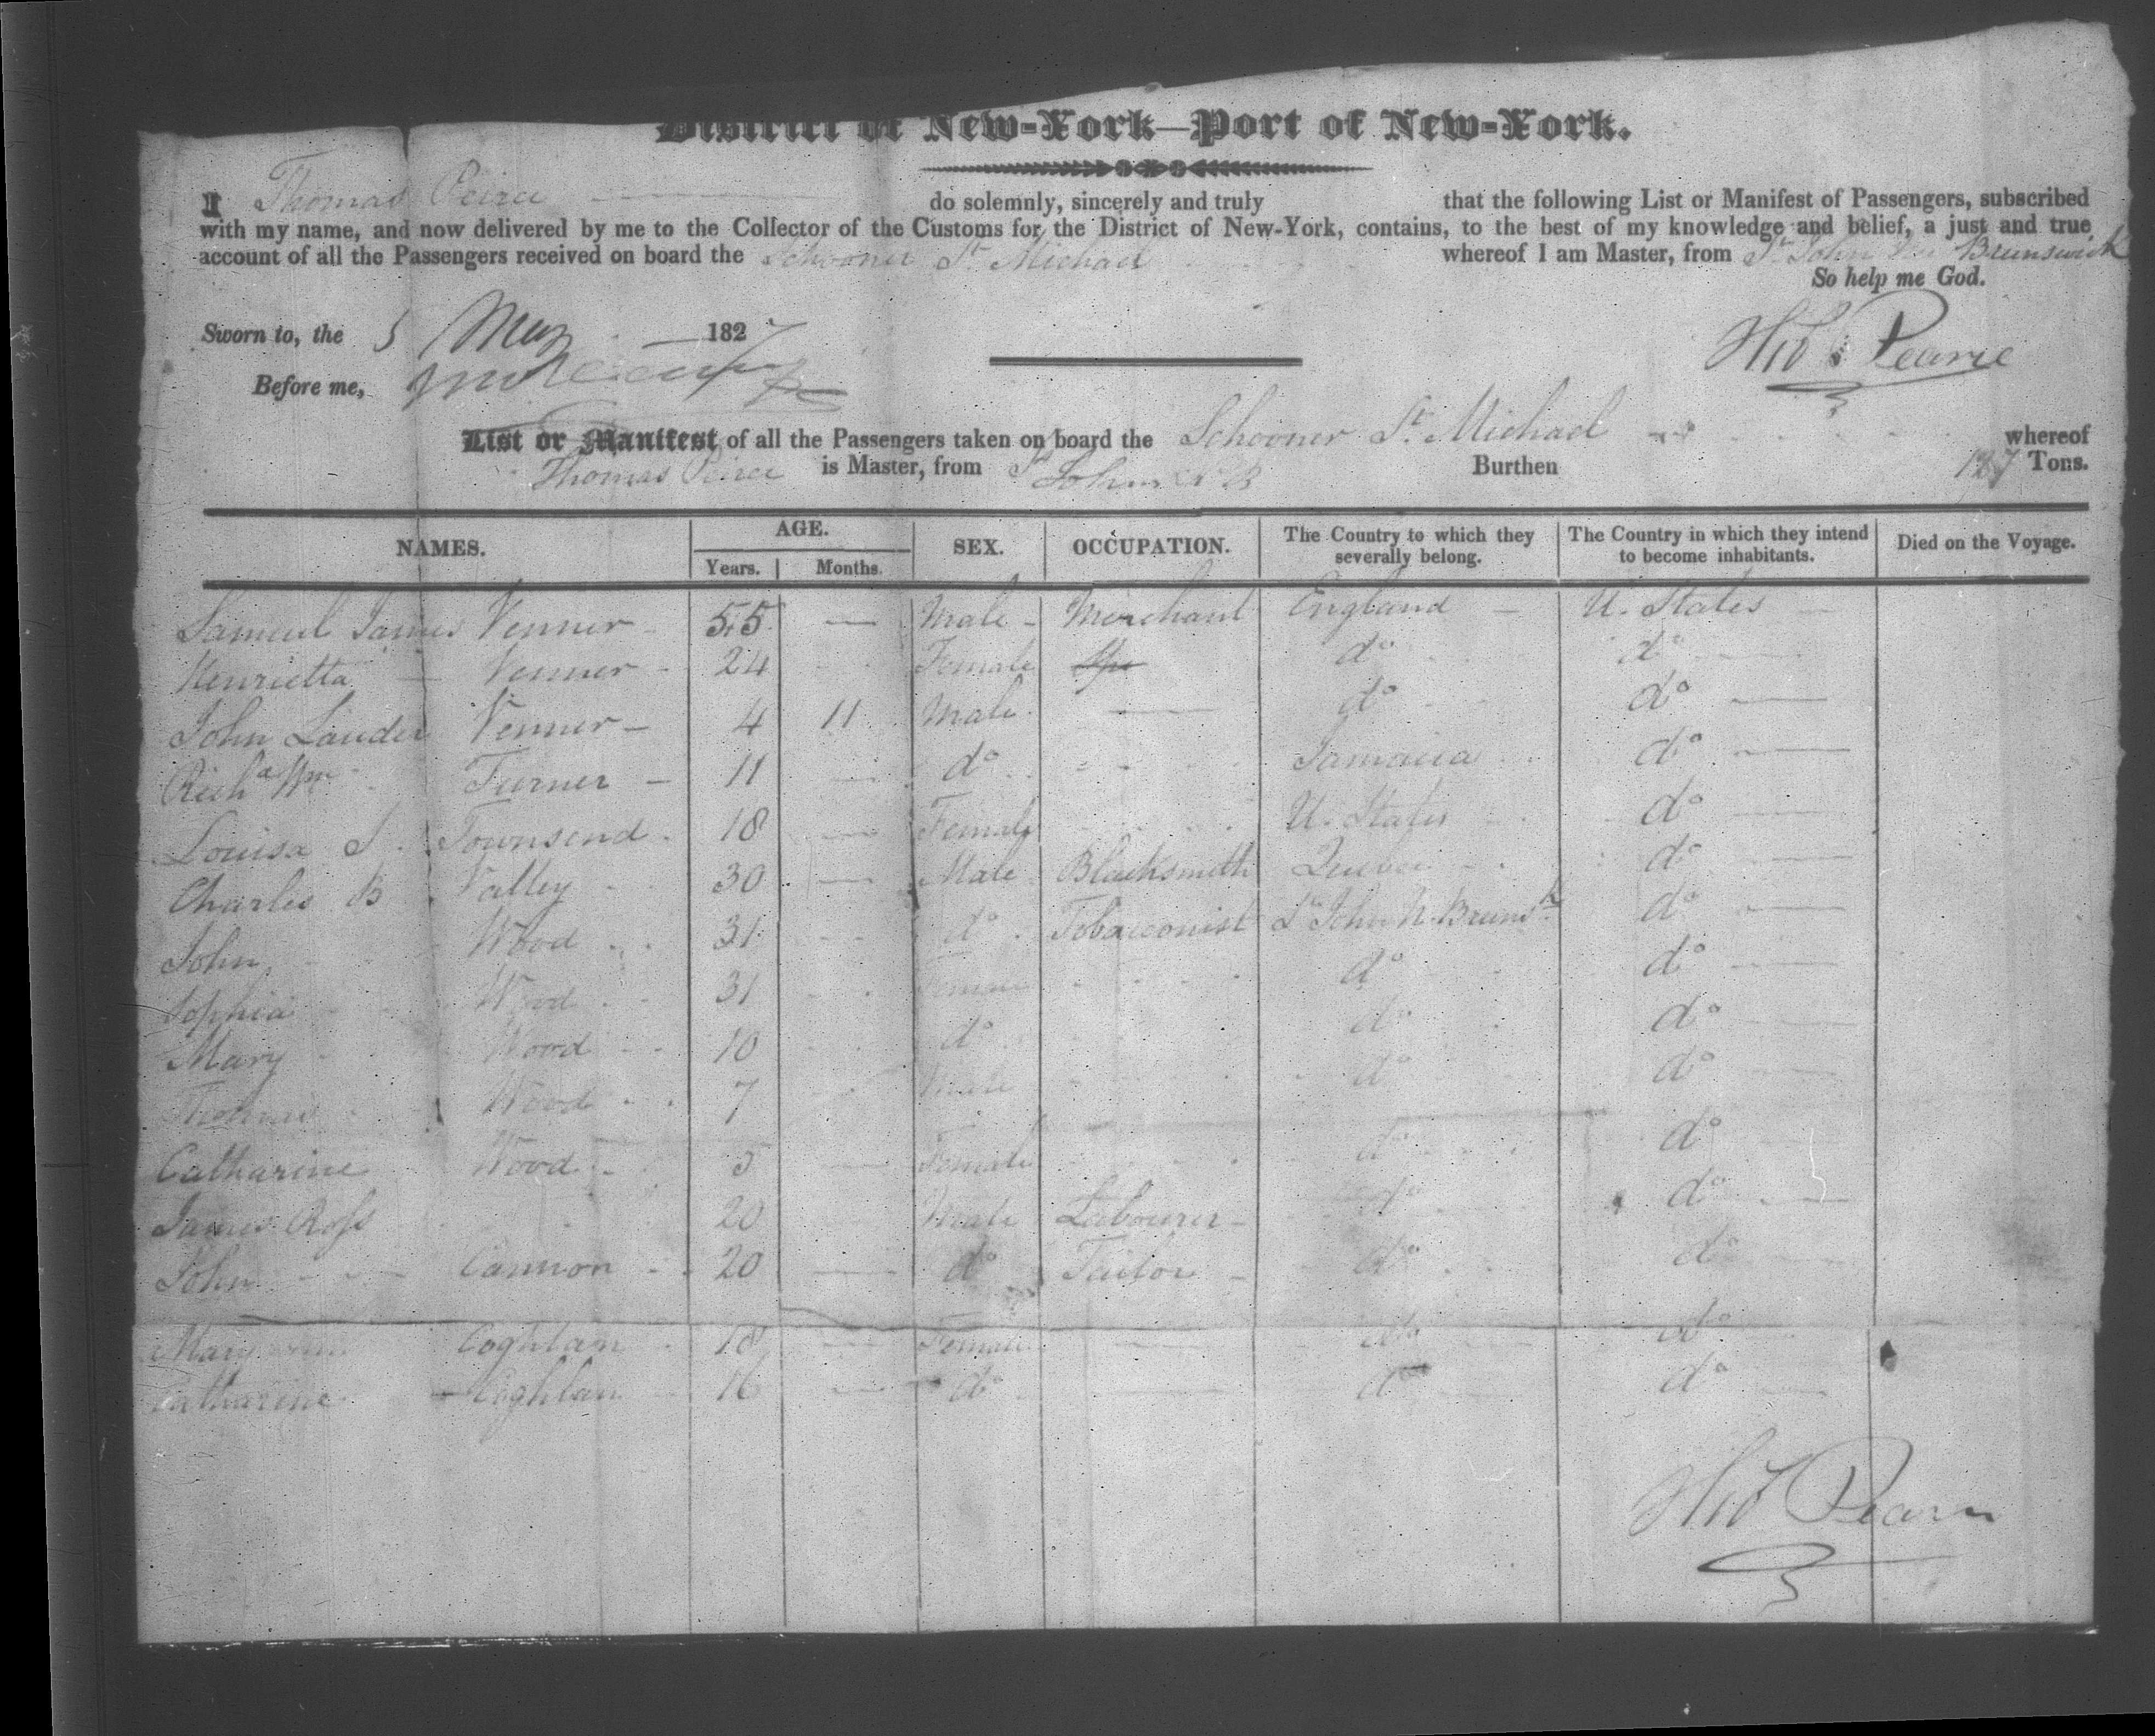 District of New-York—Port of New-York.
I Thomas Peirce do solemnly, sincerely and truly that the following List or Manifest of Passengers, subscribed
with my name, and now delivered by me to the Collector of the Customs for the District of New-York, contains, to the best of my knowledge and belief, a just and true
account of all the Passengers received on board the Schooner St. Michael whereof I am Master, from St John New Brunswick
So help me God.
Sworn to, the 5 May 1827
Thos Pearce
Before me,
List or Manifest of all the Passengers taken on board the Schooner St. Michael whereof
Thomas Peirce is Master, from St John N B Burthen 127 Tons.
NAMES. AGE. SEX. OCCUPATION. The Country to which they severally belong. The Country in which they intend to become inhabitants. Died on the Voyage.
Years. Months.
Samuel James Venner 55 — Male Merchant England U. States
Henrietta Venner 24 Female do do
John Lauder Venner 4 11 Male — do do
Richd Wm Turner 11 — do Jamaica do
Louisa S. Townsend 18 — Female U. States do
Charles B Valley 30 — Male Blacksmith Quebec do
John Wood 31 do Tobacconist St John N. Brunsk do
Sophia Wood 31 Female do do
Mary Wood 10 do do do
Thomas Wood 7 Male do do
Catharine Wood 5 — Female do do
James Ross 20 Male Labourer do do
John Cannon 20 — do Tailor do do
Mary Coghlan 18 — Female — do do
Catharine Coghlan 16 — do — do do
Tho Pearce